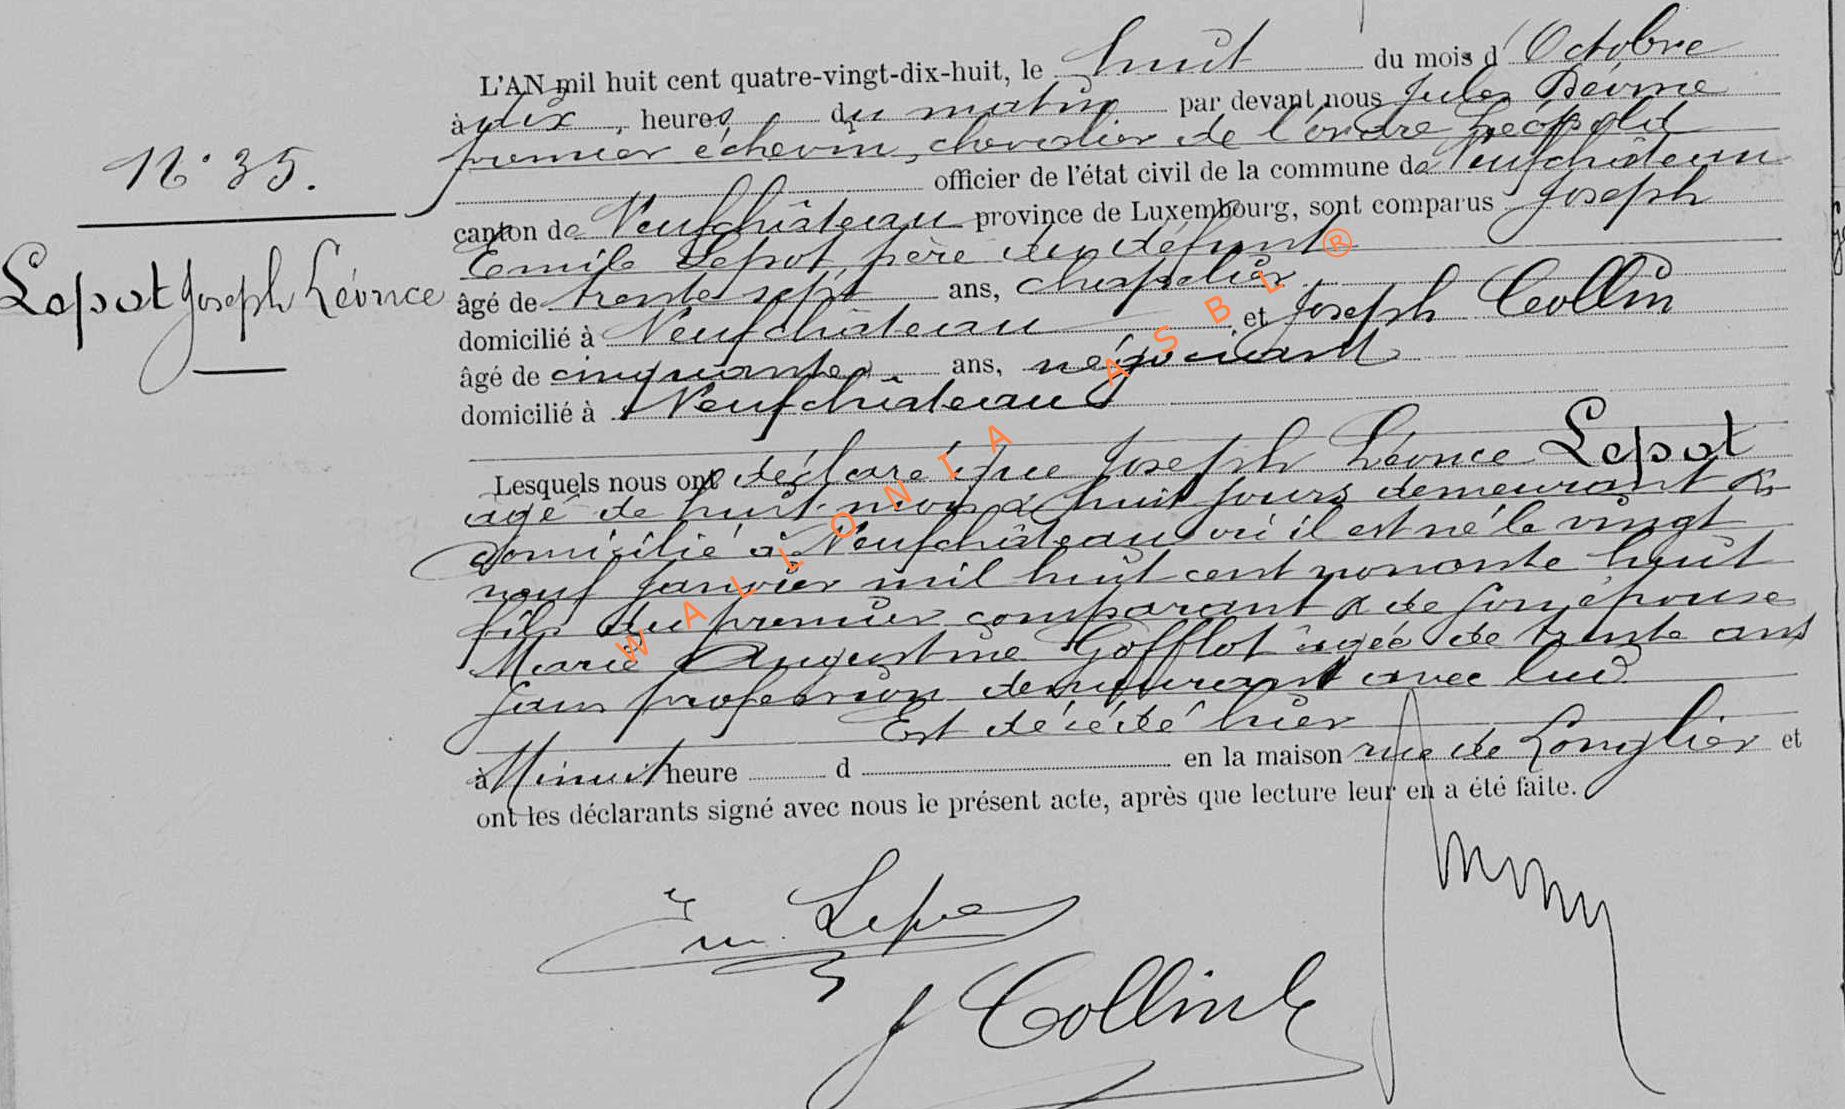 L'AN mil huit cent quatre-vingt-dix-huit, le huit du mois d'Octobre
à dix heures du matin par devant nous Jules
premier échevin, chevalier de l'ordre Léopold
officier de l'état civil de la commune de Neufchâteau
N° 35.
canton de Neufchâteau province de Luxembourg, sont comparus Joseph
Emile Lepot, père du défunt
Lepot Joseph Léonce
âgé de trente sept ans, chapelier
domicilié à Neufchâteau et Joseph Collin
âgé de cinquante ans, négociant
domicilié à Neufchâteau
Lesquels nous ont déclaré que Joseph Léonce Lepot
agé de huit mois & huit jours demeurant &
domicilié à Neufchâteau où il est né le vingt
neuf Janvier mil huit cent nonante huit
fils du premier comparant & de son épouse
Marie Augustine Gofflot âgée de trente ans
sans profession demeurant avec lui
Est décédé hier
à Minuit heure d en la maison rue de Longlier et
ont les déclarants signé avec nous le présent acte, après que lecture leur en a été faite.
Em. Lepot
J Collin
WALLONIA ASBL ®